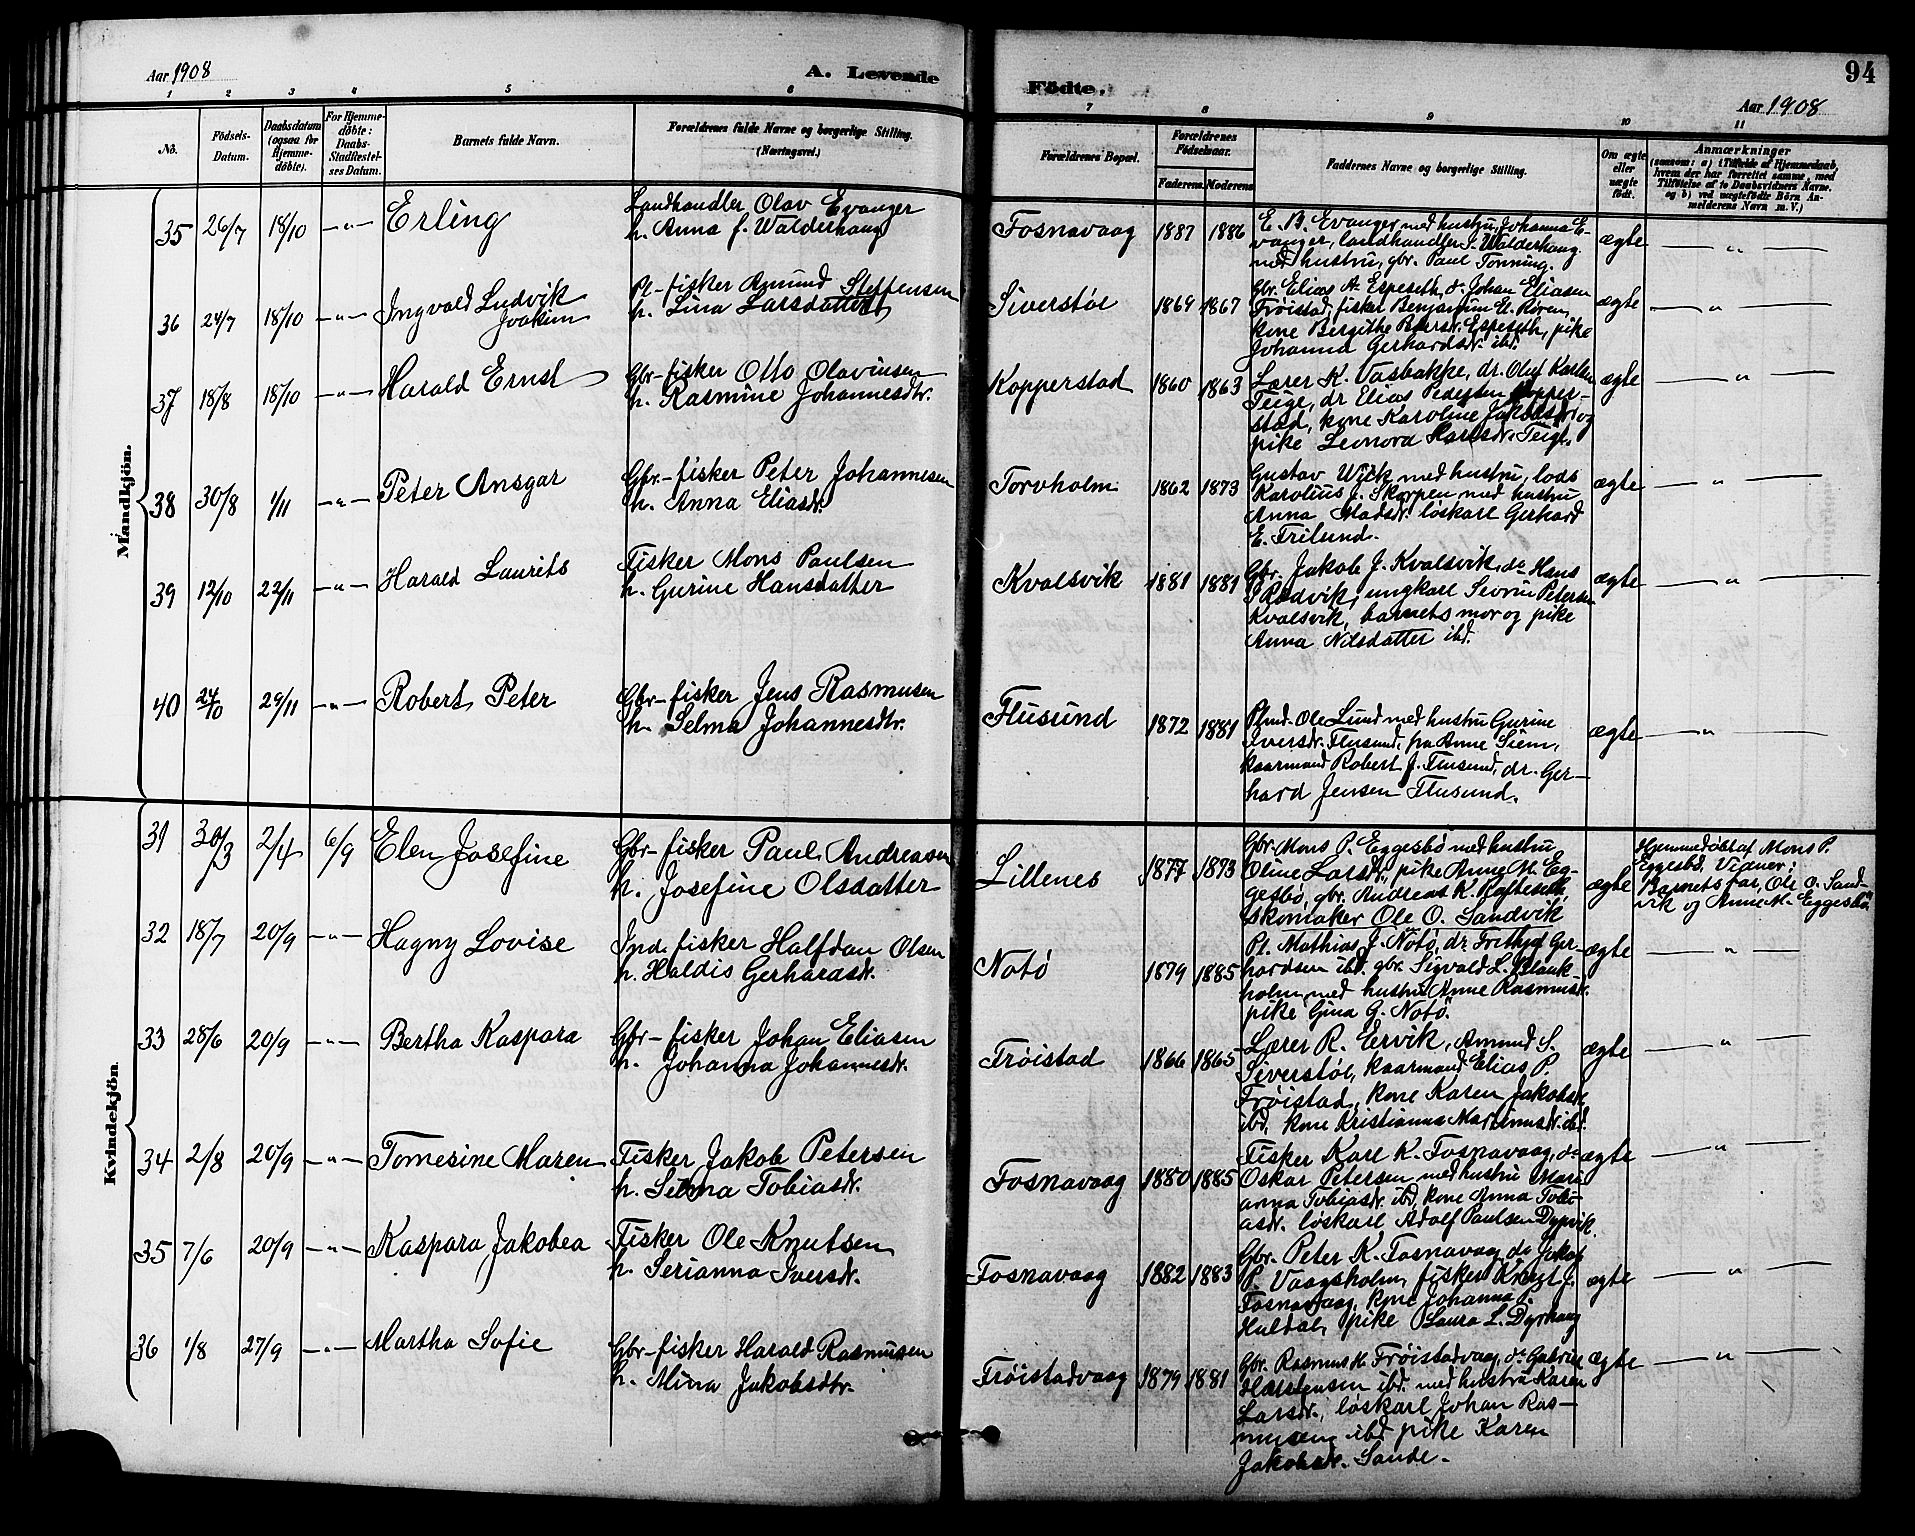 Aar 1908
A. Levende
1 2 3 4 5 6
No.
Födsels-
Datum.
Daabsdatum
(ogsaa for
Hjemme-
döbte).
For Hjemme-
döbte:
Daabs-
Stadfæstel-
ses Datum.
Barnets fulde Navn.
Forældrenes fulde Navne og borgerlige Stilling.
(Næringsvei.)
Mandkjön.
35 26/7 18/10 —"— Erling
Landhandler Olav Evanger
h. Anna f. Walderhaug
36 24/7 18/10 —"— Ingvald Ludvik
Joakim
Pl-fisker Amund Steffensen
h. Lina Larsdatter
37 18/8 18/10 —"— Harald Ernst
Gbr-fisker Otto Olavinsen
h. Rasmine Johannesdtr.
38 30/8 1/11 —"— Peter Ansgar
Gbr-fisker Peter Johannesen
h. Anna Eliasdr.
39 12/10 22/11 —"— Harald Laurits
Fisker Mons Paulsen
h. Gurine Hansdatter
40 24/10 29/11 —"— Robert Peter
Gbr-fisker Jens Rasmusen
h. Selma Johannesdtr.
Kvindekjön
31 30/3 2/4 6/9 Elen Josefine
Gbr-fisker Paul Andreasen
h. Josefine Olsdatter
32 18/7 20/9 —"— Hagny Lovise
Ind. fisker Halfdan Olsen
h. Haldis Gerhardsdr.
33 28/6 20/9 —"— Bertha Kaspara
Gbr-fisker Johan Eliasen
h. Johanna Johannesdr.
34 2/8 20/9 —"— Tomesine Maren
Fisker Jakob Petersen
h. Selma Tobiasdr.
35 7/6 20/9 —"— Kaspara Jakobea
Fisker Ole Knutsen
h. Serianna Iversdr.
36 1/8 27/9 —"— Martha Sofie
Gbr-fisker Harald Rasmusen
h. Mina Jakobsdtr.
94
Födte.
Aar 1908
7 8 9 10 11
Forældrenes Bopæl.
Forældrenes
Födselsaar.
Faderens. Moderens
Faddernes Navne og borgerlige Stilling.
Om ægte
eller
uægte
födt.
Anmærkninger
(saasom: a) i Tilfælde af Hjemmedaab,
hvem der har forrettet samme, med
Tilföielse af to Daabsvidners Navne.
og b) ved uægtefödte Börn An-
melderens Navn m. V.)
Fosnavaag 1887 1886
E. B. Evanger med hustru Johanna E-
vanger, landhandler S. Walderhaug
med hustru, gbr. Paul Tonning.
ægte — " —
Siverstøl 1869 1867
Gbr. Elias A. Espeseth, dr. Johan Eliasen
Frøistad, fisker Benjamin E.
kone Bergithe Espeseth, pike
Johanna Gerhardsdr. ibd.
ægte — " —
Kopperstad 1860 1863
Lærer K. Vasbakke, dr. Oluf Karlsen
Teige, dr Elias Kopper-
stad, kone Karoline Jakobsdr. og
pike Leonora Teige.
ægte — " —
Torvholm 1862 1873
Gustav Wiik med hustru, lods
Karolius J. Skorpen med hustru
Anna Madsdr. løskarl Gerhard
E. Frilund.
ægte — " —
Kvalsvik 1881 1881
Gbr. Jakob J. Kvalsvik, dr. Hans
ungkarl Sivrin Petersen
Kvalsvik, barnets mor og pike
Anna Nilsdatter ibd.
ægte — " —
Flusund 1872 1881
Ole Lund med hustru Gurine
Iversdr. Flusund, fru Anne Siem,
kaarmand Robert J. Flusund, dr. Ger-
hard Jensen Flusund.
ægte — " —
Lillenes 1877 1873
Gbr. Mons P. Eggesbø med hustru
Oline Larsdr, pike Anne M. Eg-
gesbø, gbr. Andreas K. Røfteseth,
skomaker Ole O. Sandvik
ægte
Hjemmedøbt af Mons P.
Eggesbø. Vidner:
Barnets far, Ole O. Sand-
vik og Anne M. Eggesbø
Notø 1879 1885
Pl. Mathias J. Notø, dr. Frithjof Ger-
hardsen ibd. gbr. Sigvald L. Blank-
holm med hustru Anne Rasmusdr.
pike Gina G. Notø.
ægte — " —
Frøistad 1866 1865
Lærer R. Ervik, Amund S.
Siverstøl, kaarmand Elias P.
Frøistad, kone Karen Jakobsdr.
ibd. kone Kristianna Martinusdr. ibd.
ægte — " —
Fosnavaag 1880 1885
Fisker Karl K. Fosnavaag, dr
Oskar Petersen med hustru Mari
anna Tobiasdr. ibd. kone Anna Tobi-
asdr. løskarl Adolf Paulsen Dypvik.
ægte — " —
Fosnavaag 1882 1883
Gbr. Peter K. Fosnavaag, dr Jakob
P. Vaagsholm, fisker Knut J.
Fosnavaag, kone Johanna
Huldal, pike Laura L. Dyrhaug
ægte — " —
Frøistadvaag 1879 1881
Gbr. Rasmus H. Frøistadvaag, dr Gabriel
Karstensen ibd. med hustru Karen
Larsdr., løskarl Johan Ras-
musen ibd pike Karen
Jakobsdr. Sande.
ægte — " —